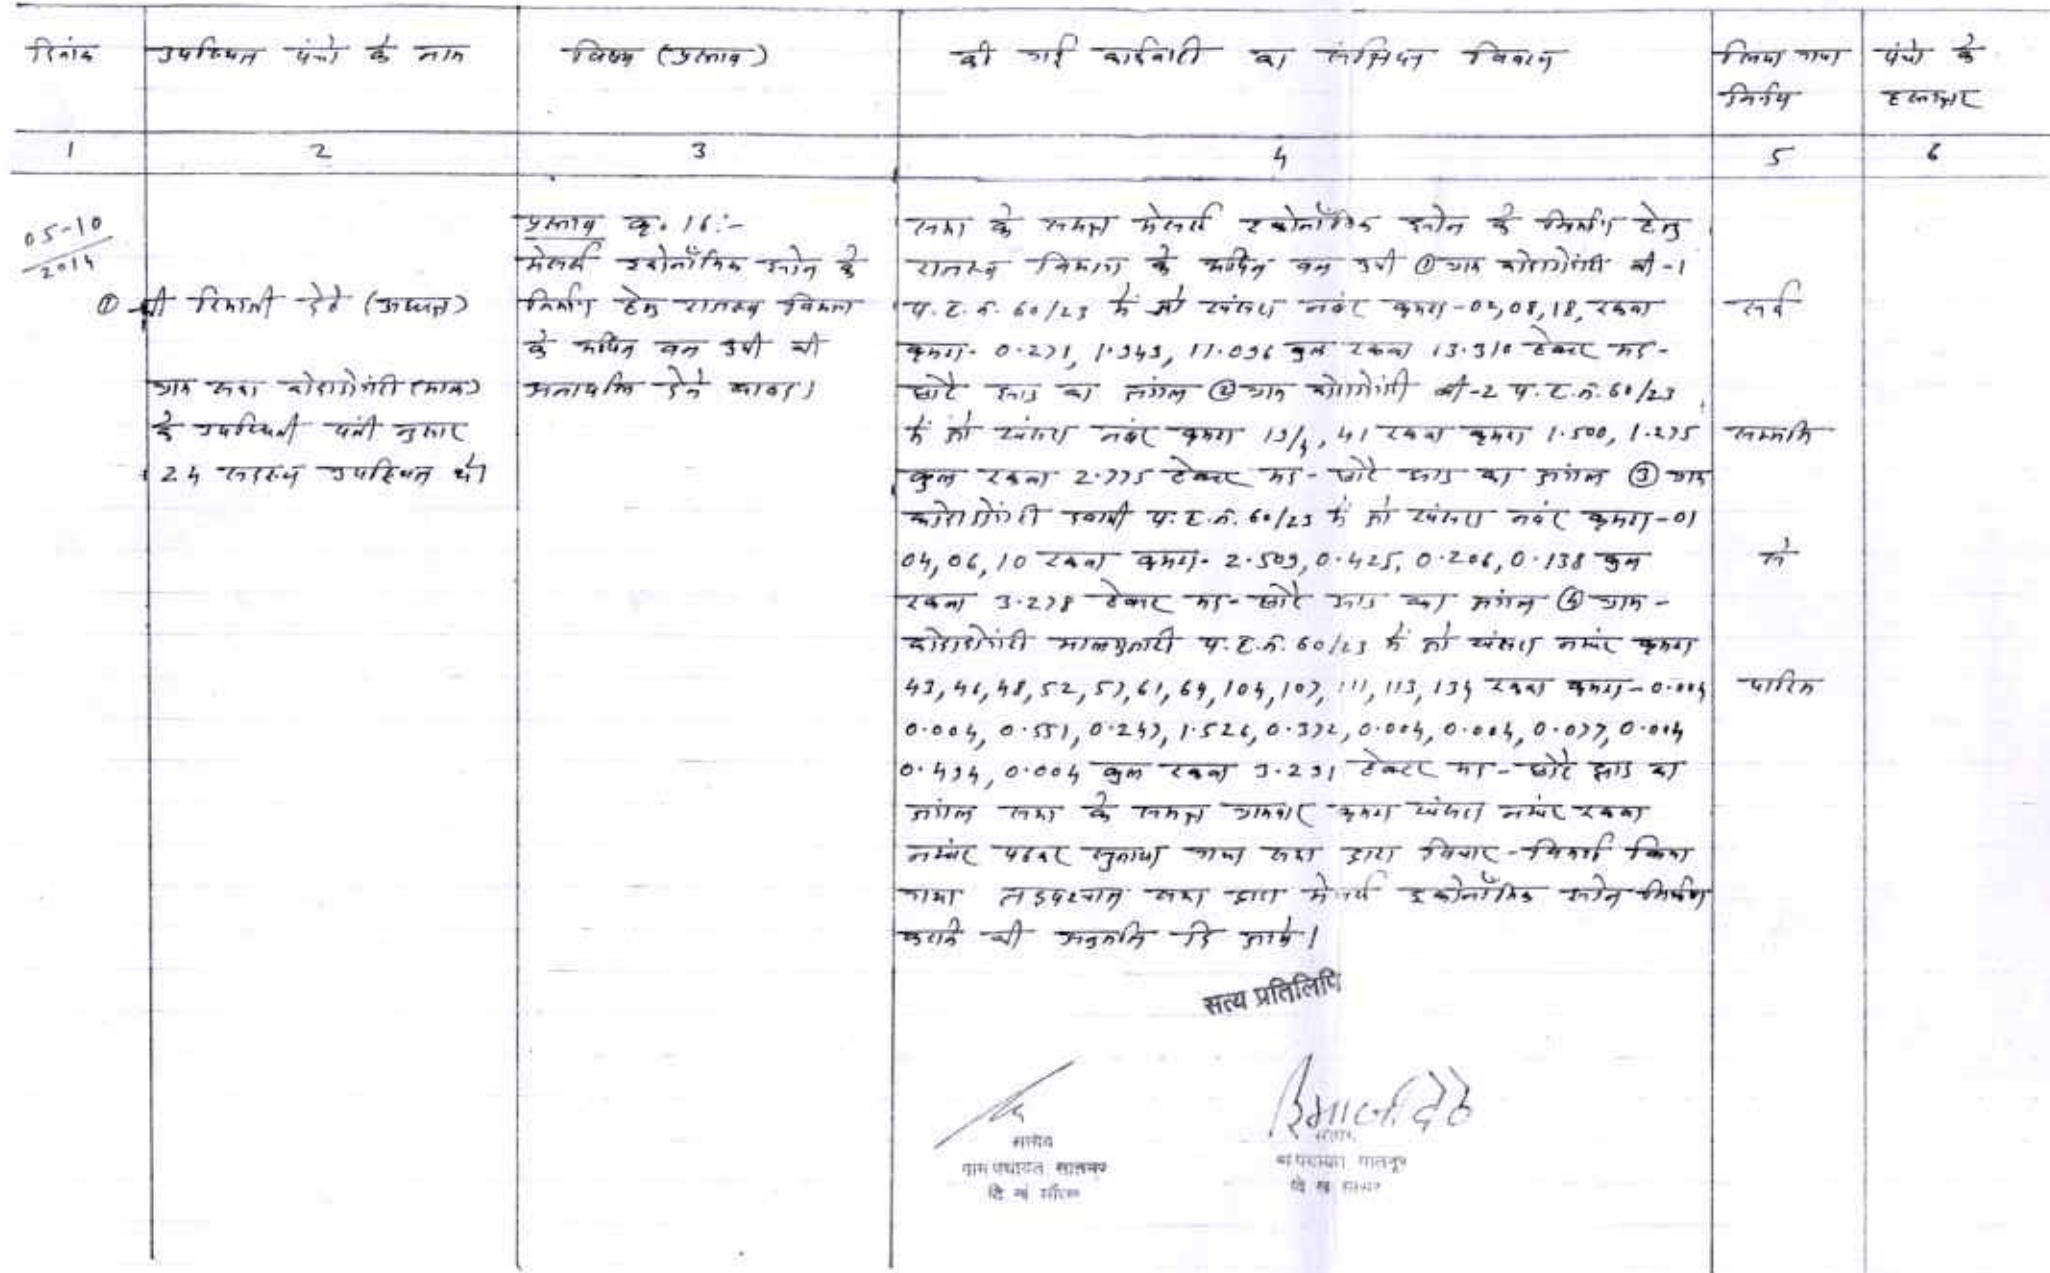 दिनांक उपस्थित पंचो के नाम विषय (प्रस्ताव) की गई कार्यवाही का संक्षिप्त विवरण लिया गया निर्णय पंचो के हस्ताक्षर
1 2 3 4 5 6
05-10
2014
① श्री हिमाली देहे (अध्यक्ष)
ग्राम सभा
के उपस्थिती पंजी नुसार
24 सदस्य उपस्थित थे।
प्रस्ताव क्र. 16:-
मेसर्स इकोनॉमिक जोन के
निर्माण हेतु राजस्व विभाग
के कथित वन उपी की
अनापत्ति देने बाबद।
सभा के समक्ष मेसर्स इकोनॉमिक जोन के निर्माण हेतु
राजस्व विभाग के कथित वन उपी ① ग्राम
प.ह.न. 60/23 में से खसरा नंबर क्रमश 08, 18, रकबा
क्रमश- कुल रकबा 13.310 हेक्टर मद-
छोटे झाड का जंगल ② ग्राम बी-2 प.ह.न. 60/23
में से खसरा नंबर क्रमश 41 रकबा क्रमश 1.500, 1.275
कुल रकबा 2.775 हेक्टर मद- छोटे झाड का जंगल ③ ग्राम
प.ह.न. 60/23 में से खसरा नंबर क्रमश-01
04, 06, 10 रकबा क्रमश- 2.509, 0.425, 0.206, 0.138 कुल
रकबा 3.278 हेक्टर मद- छोटे झाड का जंगल ④ ग्राम-
मालगुजारी प.ह.न. 60/23 में से खसरा नम्बंर क्रमश
43, 46, 48, 52, 57, 61, 69, 104, 107, 111, 113, 134 रकबा क्रमश-0.004
0.004, 0.551, 0.247, 1.526, 0.372, 0.004, 0.004, 0.077, 0.004
0.494, 0.004 कुल रकबा 3.291 हेक्टर मद- छोटे झाड का
जंगल सभा के समक्ष ग्रामवार क्रमश खसरा नम्बंर रकबा
नम्बंर पढकर सुनाया गया सभा द्वारा विचार-विमर्श किया
गया तद्पश्चात सभा द्वारा मेसर्स इकोनॉमिक जोन निर्माण
कराने की अनुमति दि जाये।
सर्व
सम्मति
से
पारित
सत्य प्रतिलिपि
हिमाली देहे
सचिव
ग्राम पंचायत